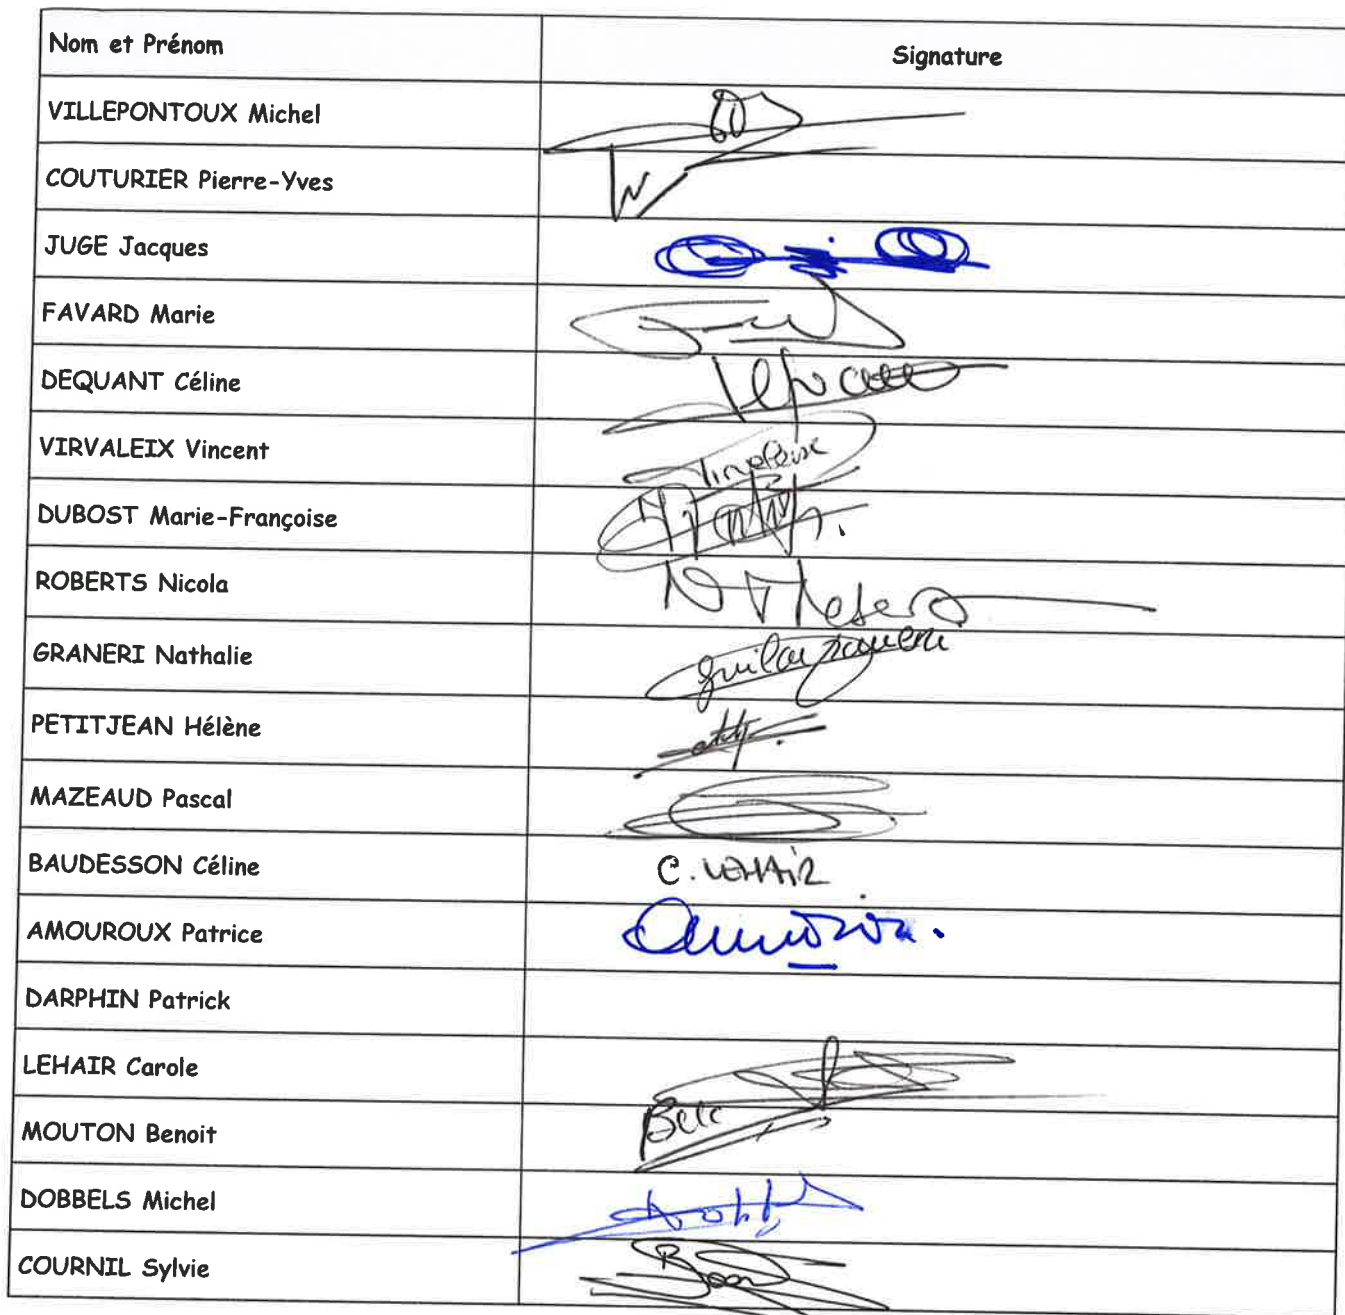 Nom et Prénom Signature
VILLEPONTOUX Michel
COUTURIER Pierre-Yves
JUGE Jacques
FAVARD Marie
DEQUANT Céline
VIRVALEIX Vincent
DUBOST Marie-Françoise
ROBERTS Nicola
GRANERI Nathalie
PETITJEAN Hélène
MAZEAUD Pascal
BAUDESSON Céline C. LEHAIR
AMOUROUX Patrice
DARPHIN Patrick
LEHAIR Carole
MOUTON Benoit
DOBBELS Michel
COURNIL Sylvie